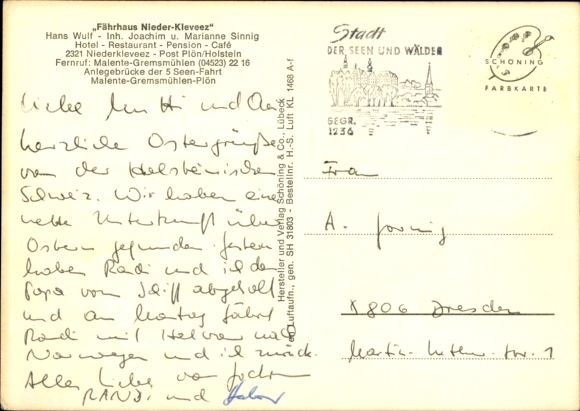 „Fährhaus Nieder-Kleveez"
Hans Wulf - Inh. Joachim u. Marianne Sinnig
Hotel - Restaurant - Pension - Café
2321 Niederkleveez - Post Plön/Holstein
Fernruf: Malente-Gremsmühlen (04523) 22 16
Anlegebrücke der 5 Seen-Fahrt
Malente-Gremsmühlen-Plön
Liebe und
herzliche Ostergrüße
von der Holsteinischen
Schweiz. Wir haben eine
nette Unterkunft über
Ostern gefunden. Gestern
haben Randi und ich den
Papa vom Schiff abgeholt
und am Montag fährt
Randi mit nach
Norwegen und ich zurück.
Alles Liebe von Jochen
RANDI und
Hersteller und Verlag Schöning & Co., Lübeck
Luftaufn., gen. SH 31803 · Bestellnr. H.-S. Luft KL 1468 A-f
Stadt
DER SEEN UND WÄLDER
BEGR.
1236
SCHÖNING
FARBKARTE
Frau
A.
X 806 Dresden
Martin-Luther-Str. 1